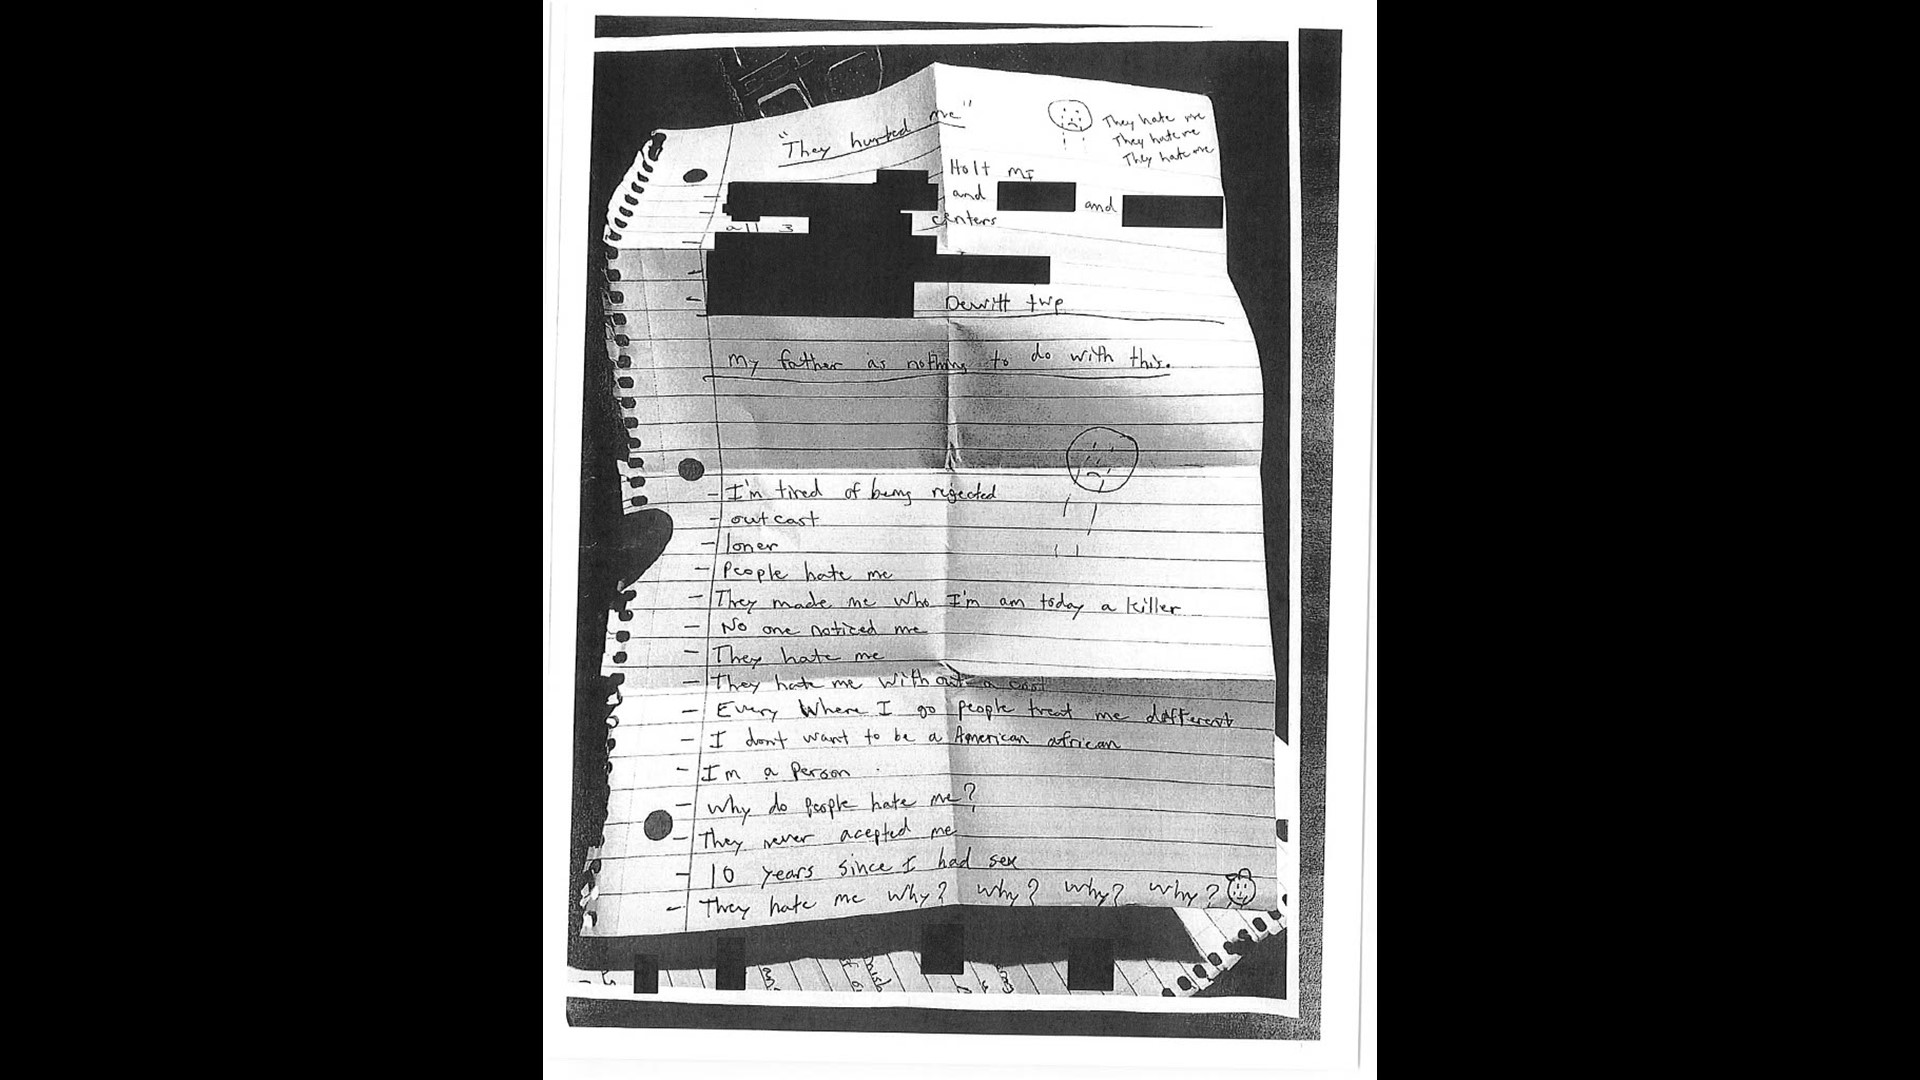 "They hurted me"
They hate me
They hate me
They hate me
Holt MI
and and
all 3 centers
Dewitt twp
My father as nothing to do with this.
- I'm tired of being rejected
- outcast
- loner
- People hate me
- They made me who I'm am today a killer
- No one noticed me
- They hate me
- They hate me without a
- Every Where I go people treat me different
- I dont want to be a American african
- Im a Person
- Why do people hate me?
- They never acepted me
- 10 years since I had sex
- They hate me why? why? why? why?